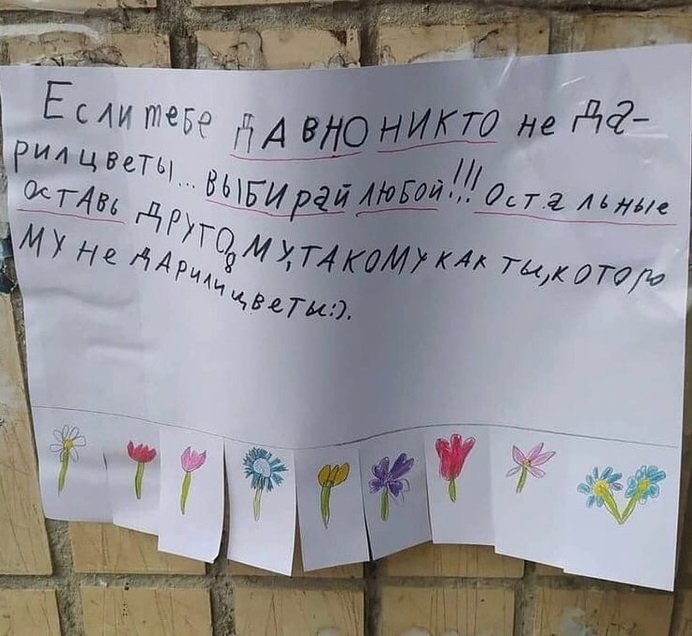 Если тебе давно никто не да-
рил цветы... выбирай любой!!! Остальные
оставь другому, такому как ты, которо
му не дарили цветы:).